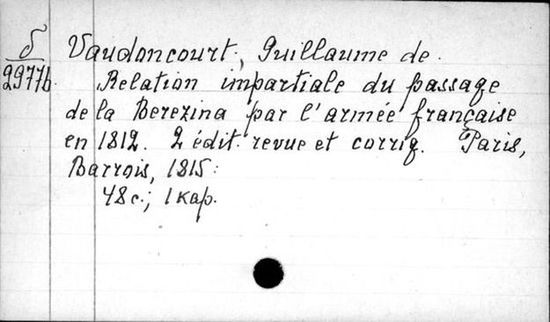 δ
2977b
Vaudoncourt, Guillaume de.
Relation impartiale du passage
de la Berezina par l'armée française
en 1812. 2 édit. revue et corrig. Paris,
Barrois, 1815.
48 c.; 1 кар.